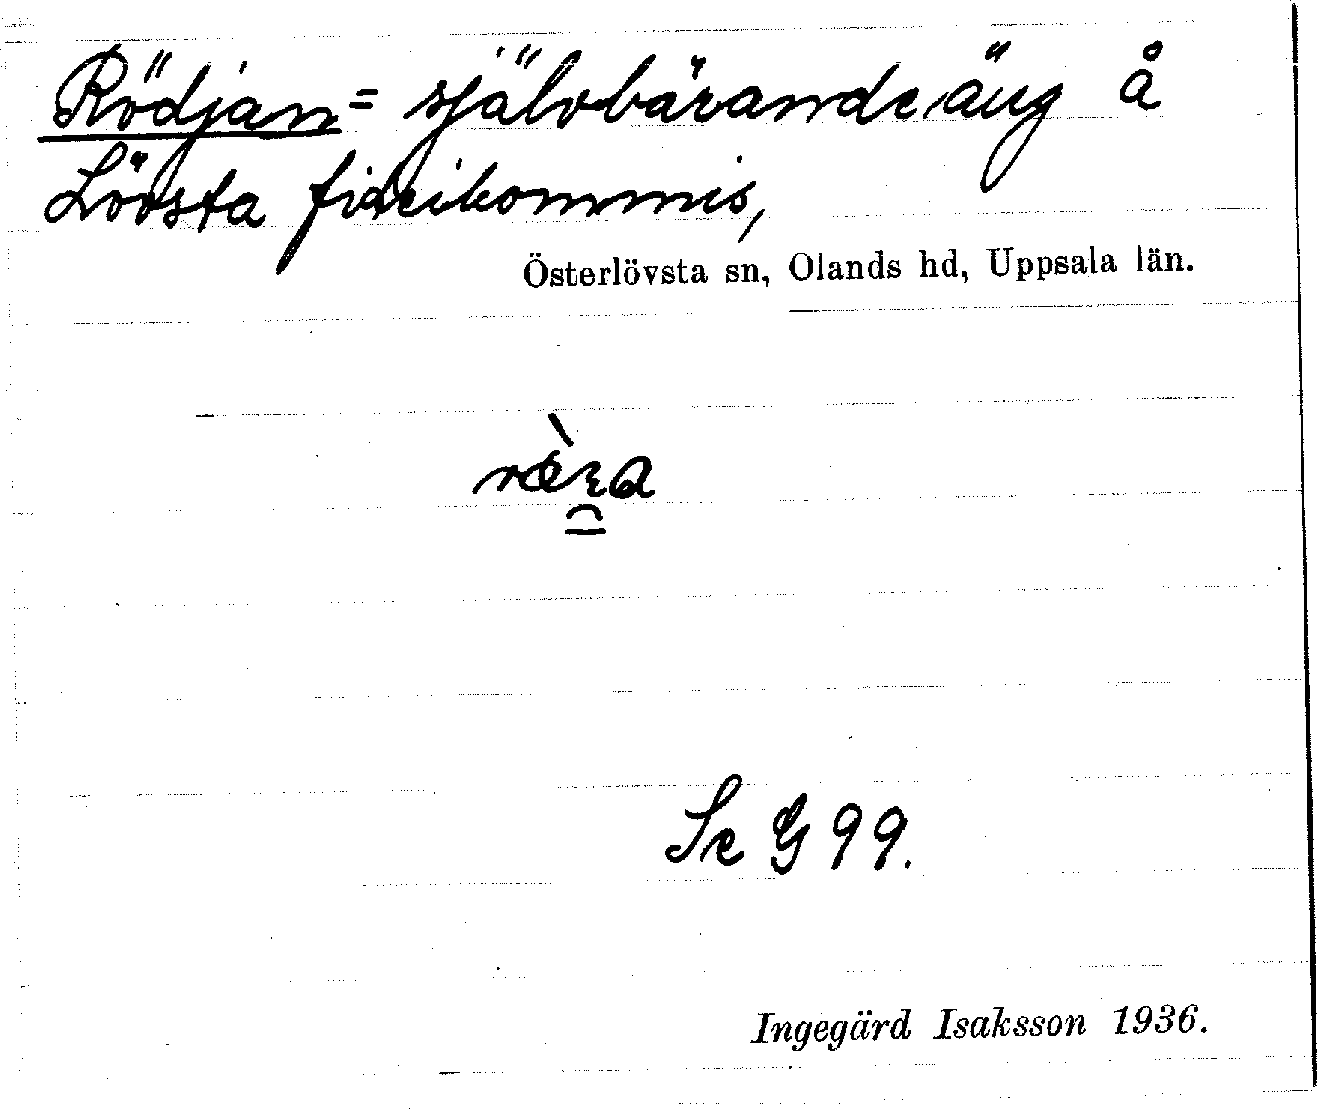 Rödjan = självbärande äng å
Lövsta fideikommis,
Österlövsta sn, Olands hd, Uppsala län.
Se G 99.
Ingegärd Isaksson 1936.